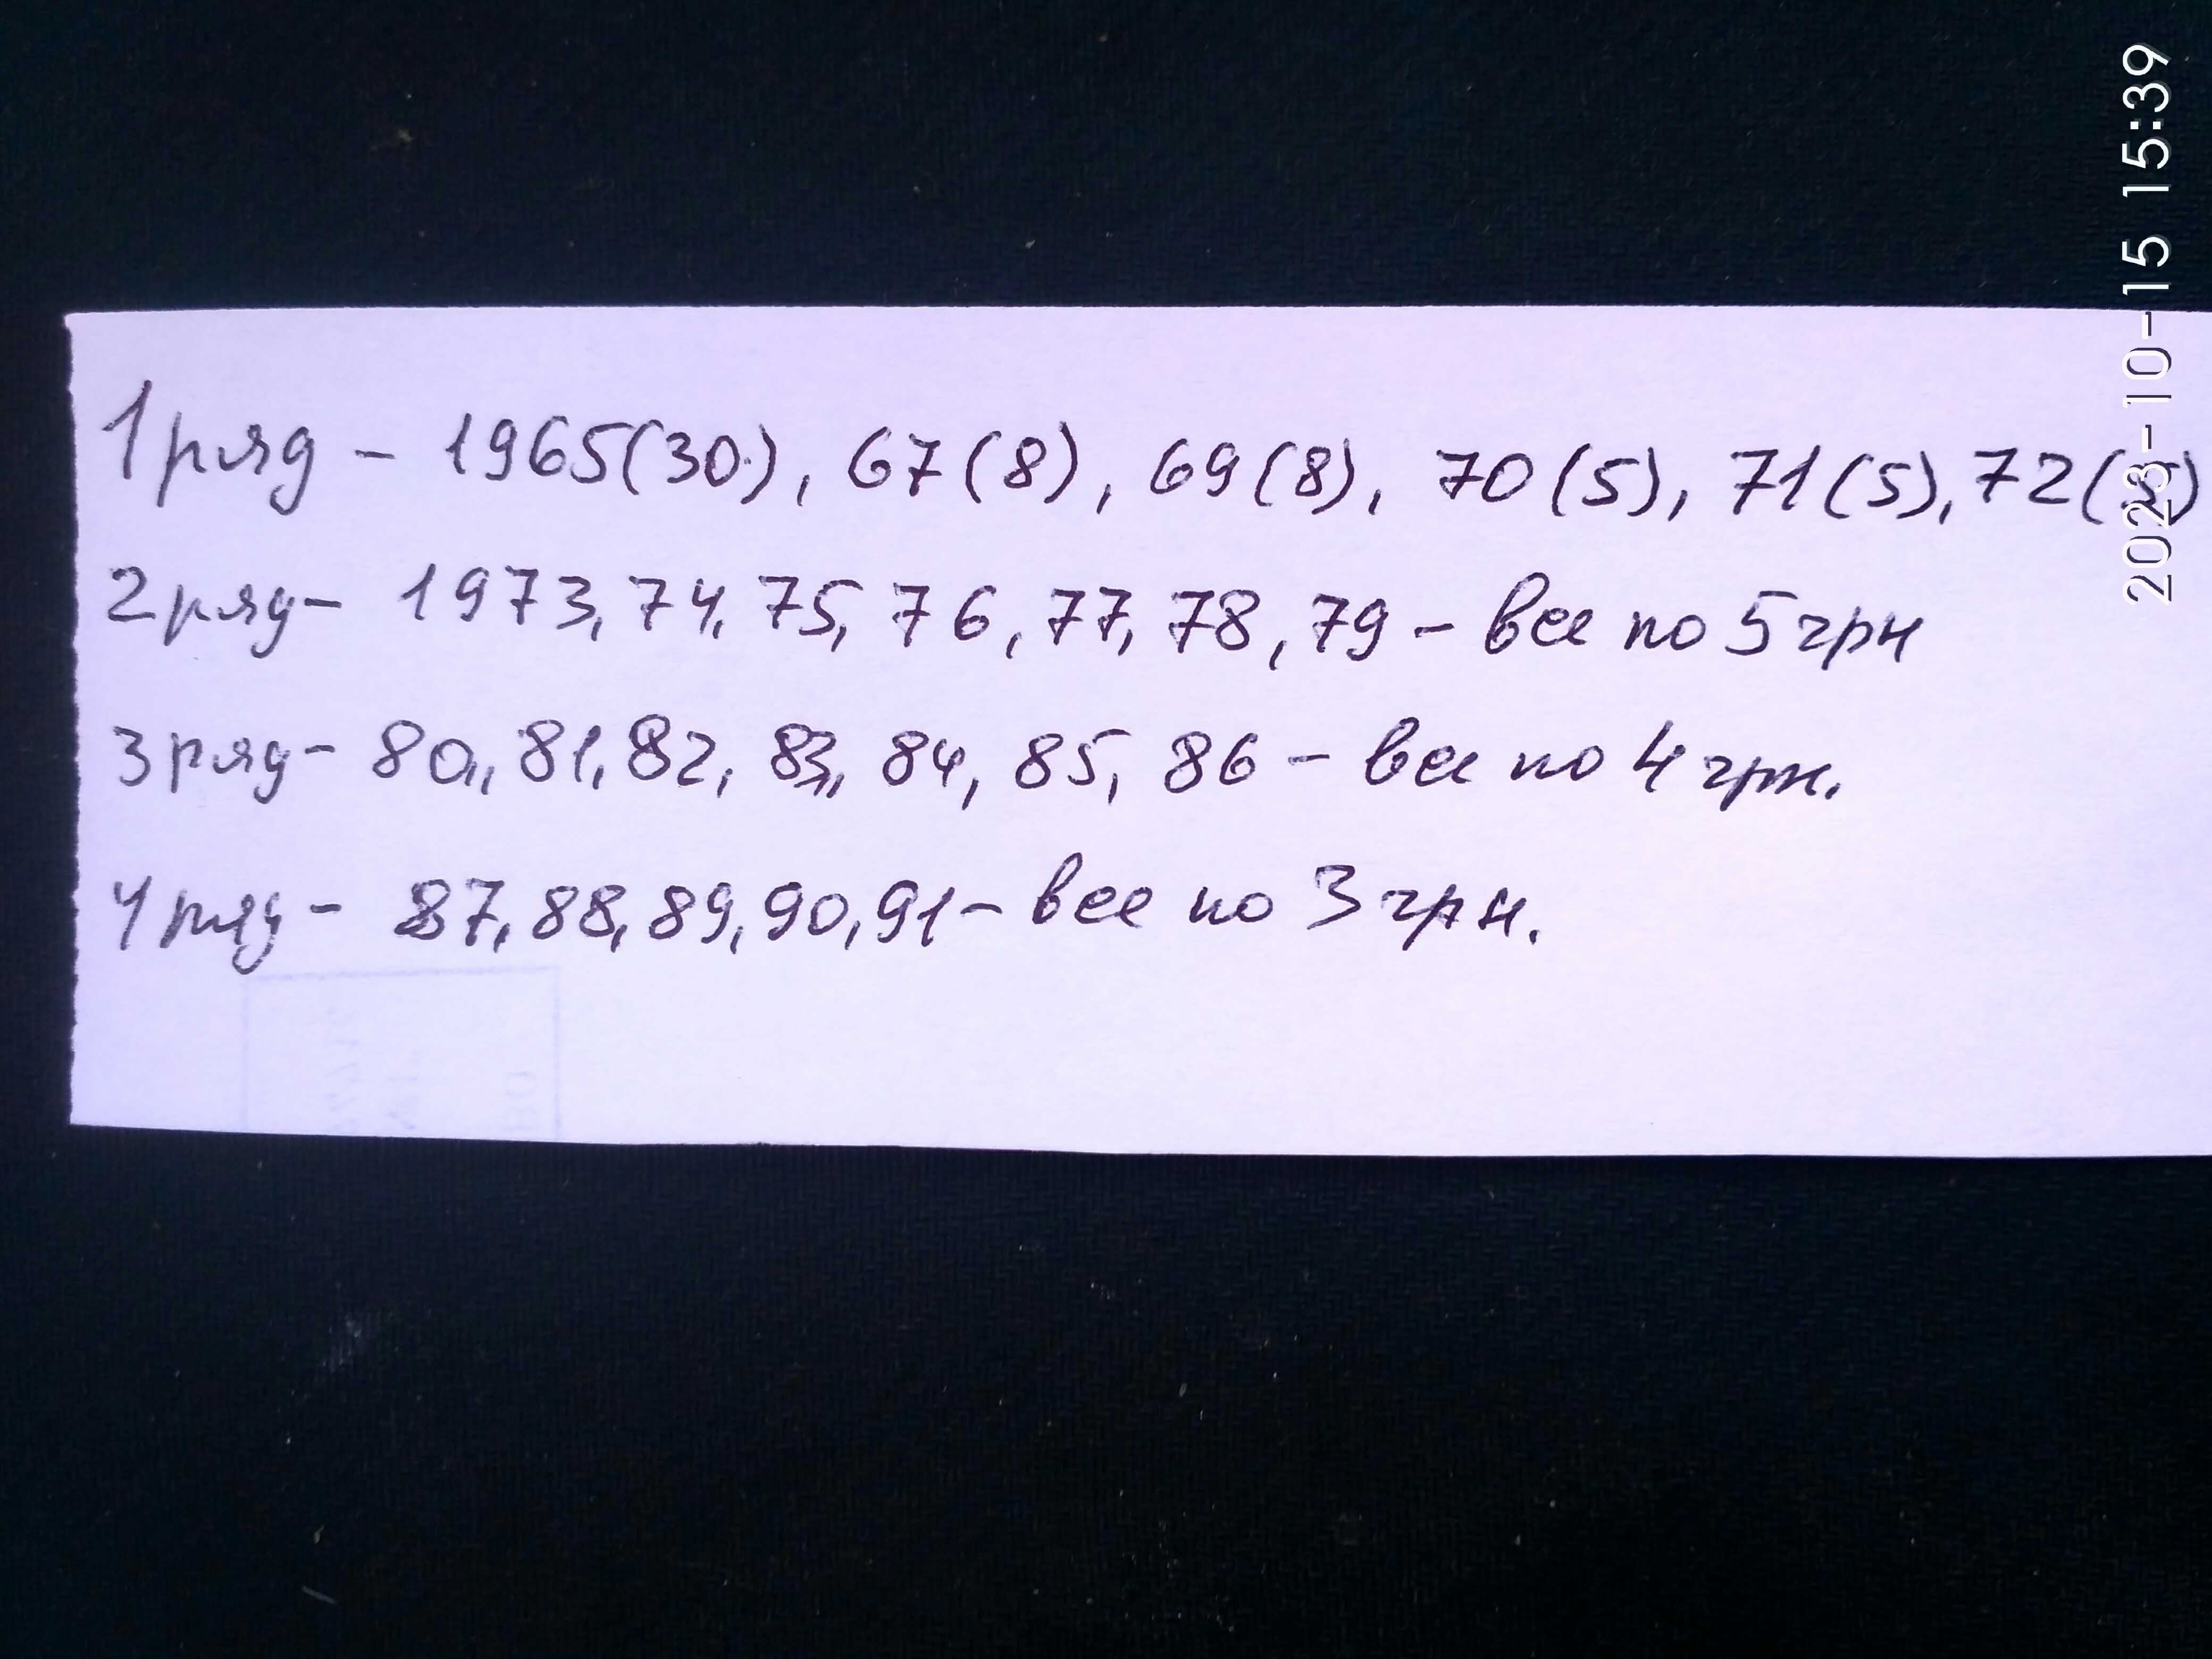 1 ряд - 1965(30), 67(8), 69(8), 70(5), 71(5), 72(5)
2 ряд - 1973, 74, 75, 76, 77, 78, 79 - все по 5 грн
3 ряд - 80, 81, 82, 83, 84, 85, 86 - все по 4 грн.
4 ряд - 87, 88, 89, 90, 91 - все по 3 грн.
2023-10-15 15:39